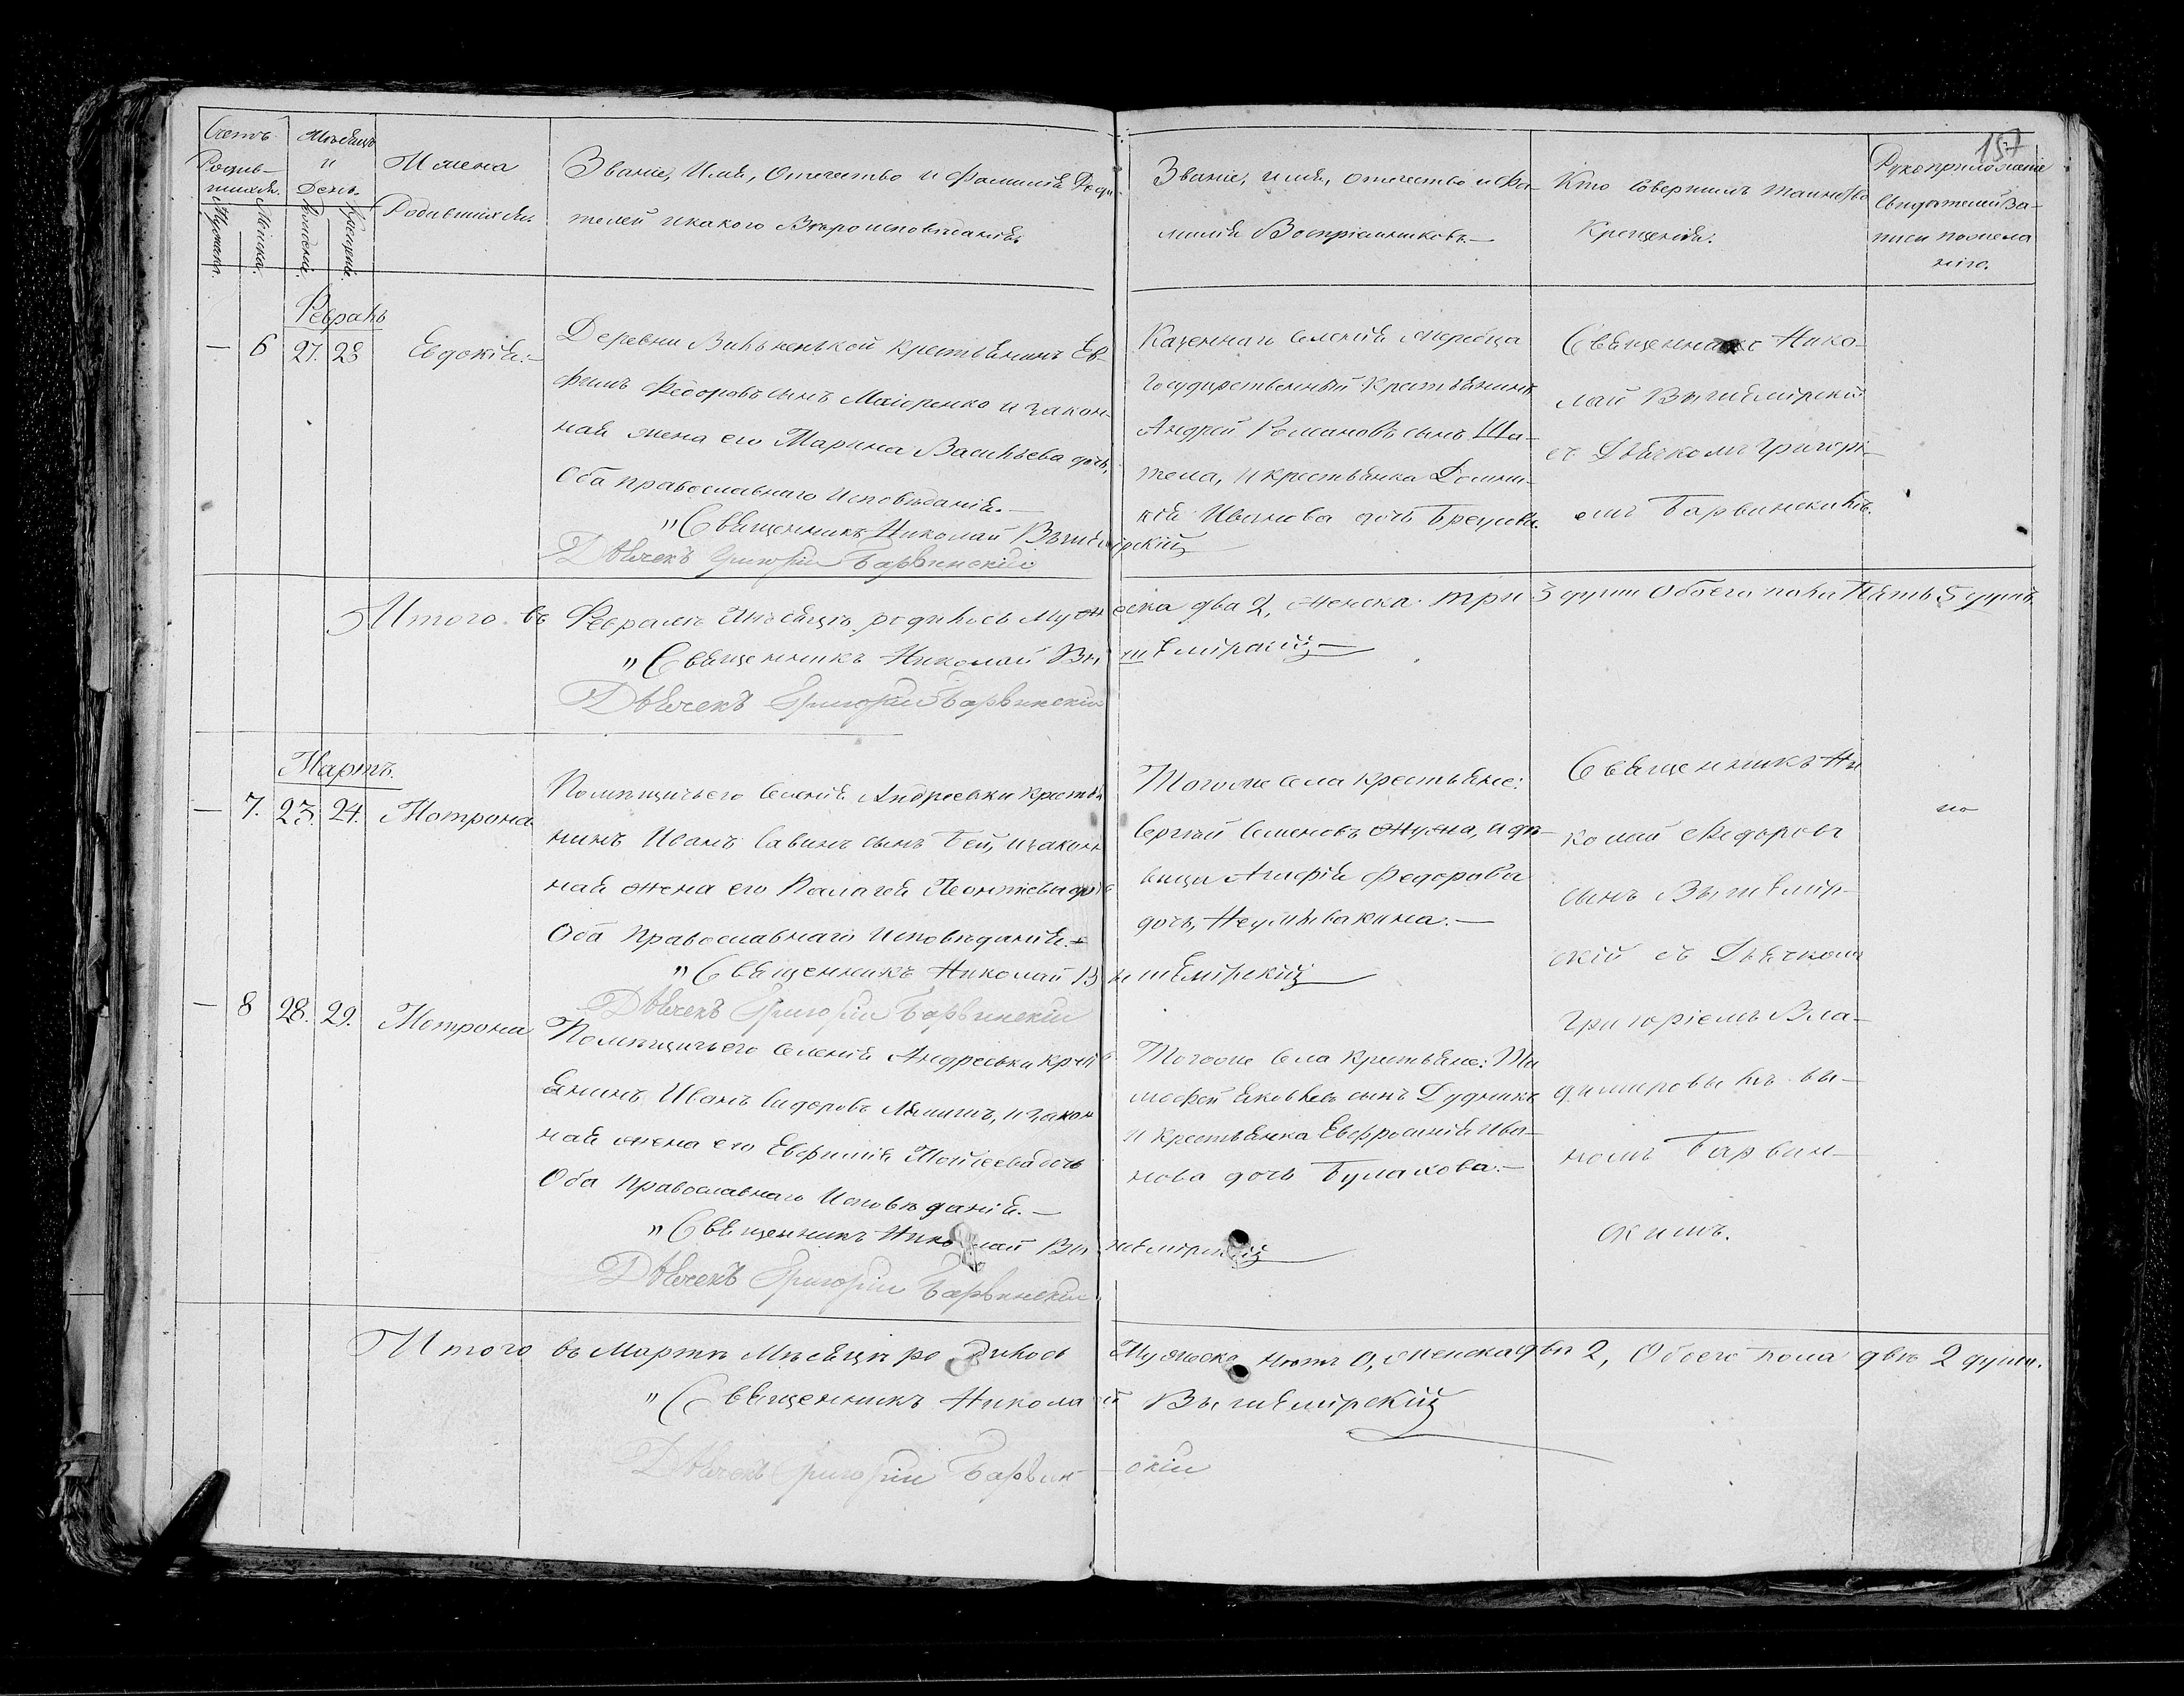 157
Счетъ
Родив-
шихся.
Мужеска.
Женска.
Мѣсяцъ
и
День.
Рожденія.
Крещенія.
Имена
Родившихся.
Званіе, Имя, Отечество и Фамилія Роди-
телей и какого Вѣроисповѣданія
Званіе, имя, отечество и Фа-
милія Воспріемниковъ.—
Кто Совершилъ таинство
Крещенія.
Рукоприложеніе
Свидѣтелей За-
писи по жела
нію.
Февраль
— 6 27. 28 Евдокія.—
Деревни крестьянинъ Ев-
фимъ Федоровъ сынъ Маіоренко и закон-
ная жена его Марина Васильева дочь,
Оба православнаго Исповѣданія.—
"Священникъ Николай Вышемірскій
Дьячекъ Григорій Барвинскій
Казеннаго селенія
государственный крестьянинъ
Андрей Романовъ сынъ Ша-
тела, и крестьянка Домни-
кія Иванова дочь
Священникъ Нико-
лай Вышемірскій
съ Дьячкомъ Григорі-
емъ Барвинскимъ.
Итого въ Февралѣ Мѣсяцѣ родилось Мужеска два 2, женска три 3 души Обоего пола Пять 5 душъ.
"Священникъ Николай Вышемірскій—
Дьячекъ Григорій Барвинскій
Мартъ.
— 7. 23. 24. Мотрона
Помѣщичьего Селенія Андреевки крестья
нинъ Иванъ Савинъ сынъ Бей, и закон
ная жена его Палагея Леонтьева дочь
Оба Православнаго Исповѣданія.—
"Священникъ Николай Вышемірскій
Дьячекъ Григорій Барвинскій
Тогоже села крестьяне:
Сергѣй Семеновъ и дѣ-
вица Агафія Федорова
дочь, Неумывакина.—
Священникъ Ни
колай Федоровъ
сынъ Вышемір-
скій съ Дьячкомъ
Григоріемъ Вла-
димировымъ сы-
номъ Барвин-
скимъ.
— 8 28. 29. Мотрона
Помѣщичьего Селенія Андреевки крест
янинъ Иванъ Сидоровъ и закон
ная жена его Евфимія Мойсеева дочь
Оба Православнаго Исповѣданія.—
"Священникъ Николай Вышемірскій
Дьячекъ Григорій Барвинскій
Тогоже Села Крестьяне: Ти
мофей Яковлевъ сынъ Дудникъ
и крестьянка Евфросинія Ива-
нова дочь Булахова.—
Итого въ Мартѣ Мѣсяцѣ родилось Мужеска нѣтъ 0, женска двѣ 2, Обоего пола двѣ 2 души.
"Священникъ Николай Вышемірскій
Дьячекъ Григорій Барвинскій